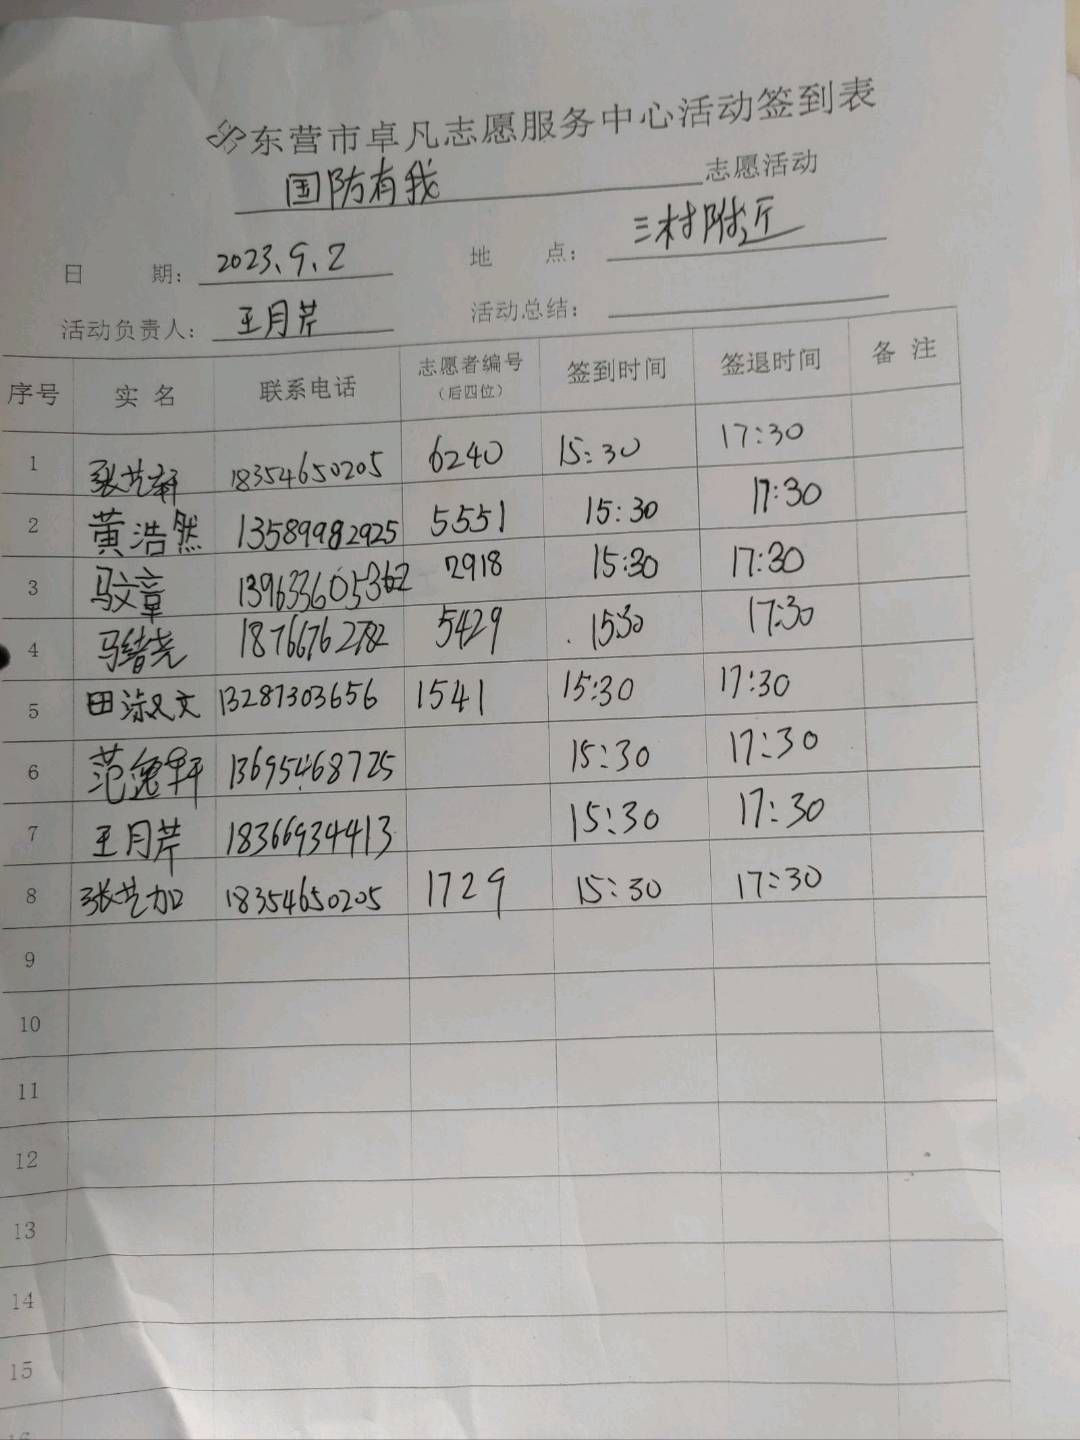 东营市卓凡志愿服务中心活动签到表
国防有我 志愿活动
日 期: 2023.9.2 地 点: 三村附近
活动负责人: 王月芹 活动总结:
序号 实 名 联系电话 志愿者编号 (后四位) 签到时间 签退时间 备 注
1 张艺轩 18354650205 6240 15:30 17:30
2 黄浩然 13589982925 5551 15:30 17:30
3 马文章 139633605362 2918 15:30 17:30
4 马绪尧 18766762782 5429 15:30 17:30
5 田淑文 13287303656 1541 15:30 17:30
6 范逸轩 13695468725 15:30 17:30
7 王月芹 18366934413 15:30 17:30
8 张艺加 18354650205 1729 15:30 17:30
9
10
11
12
13
14
15
16